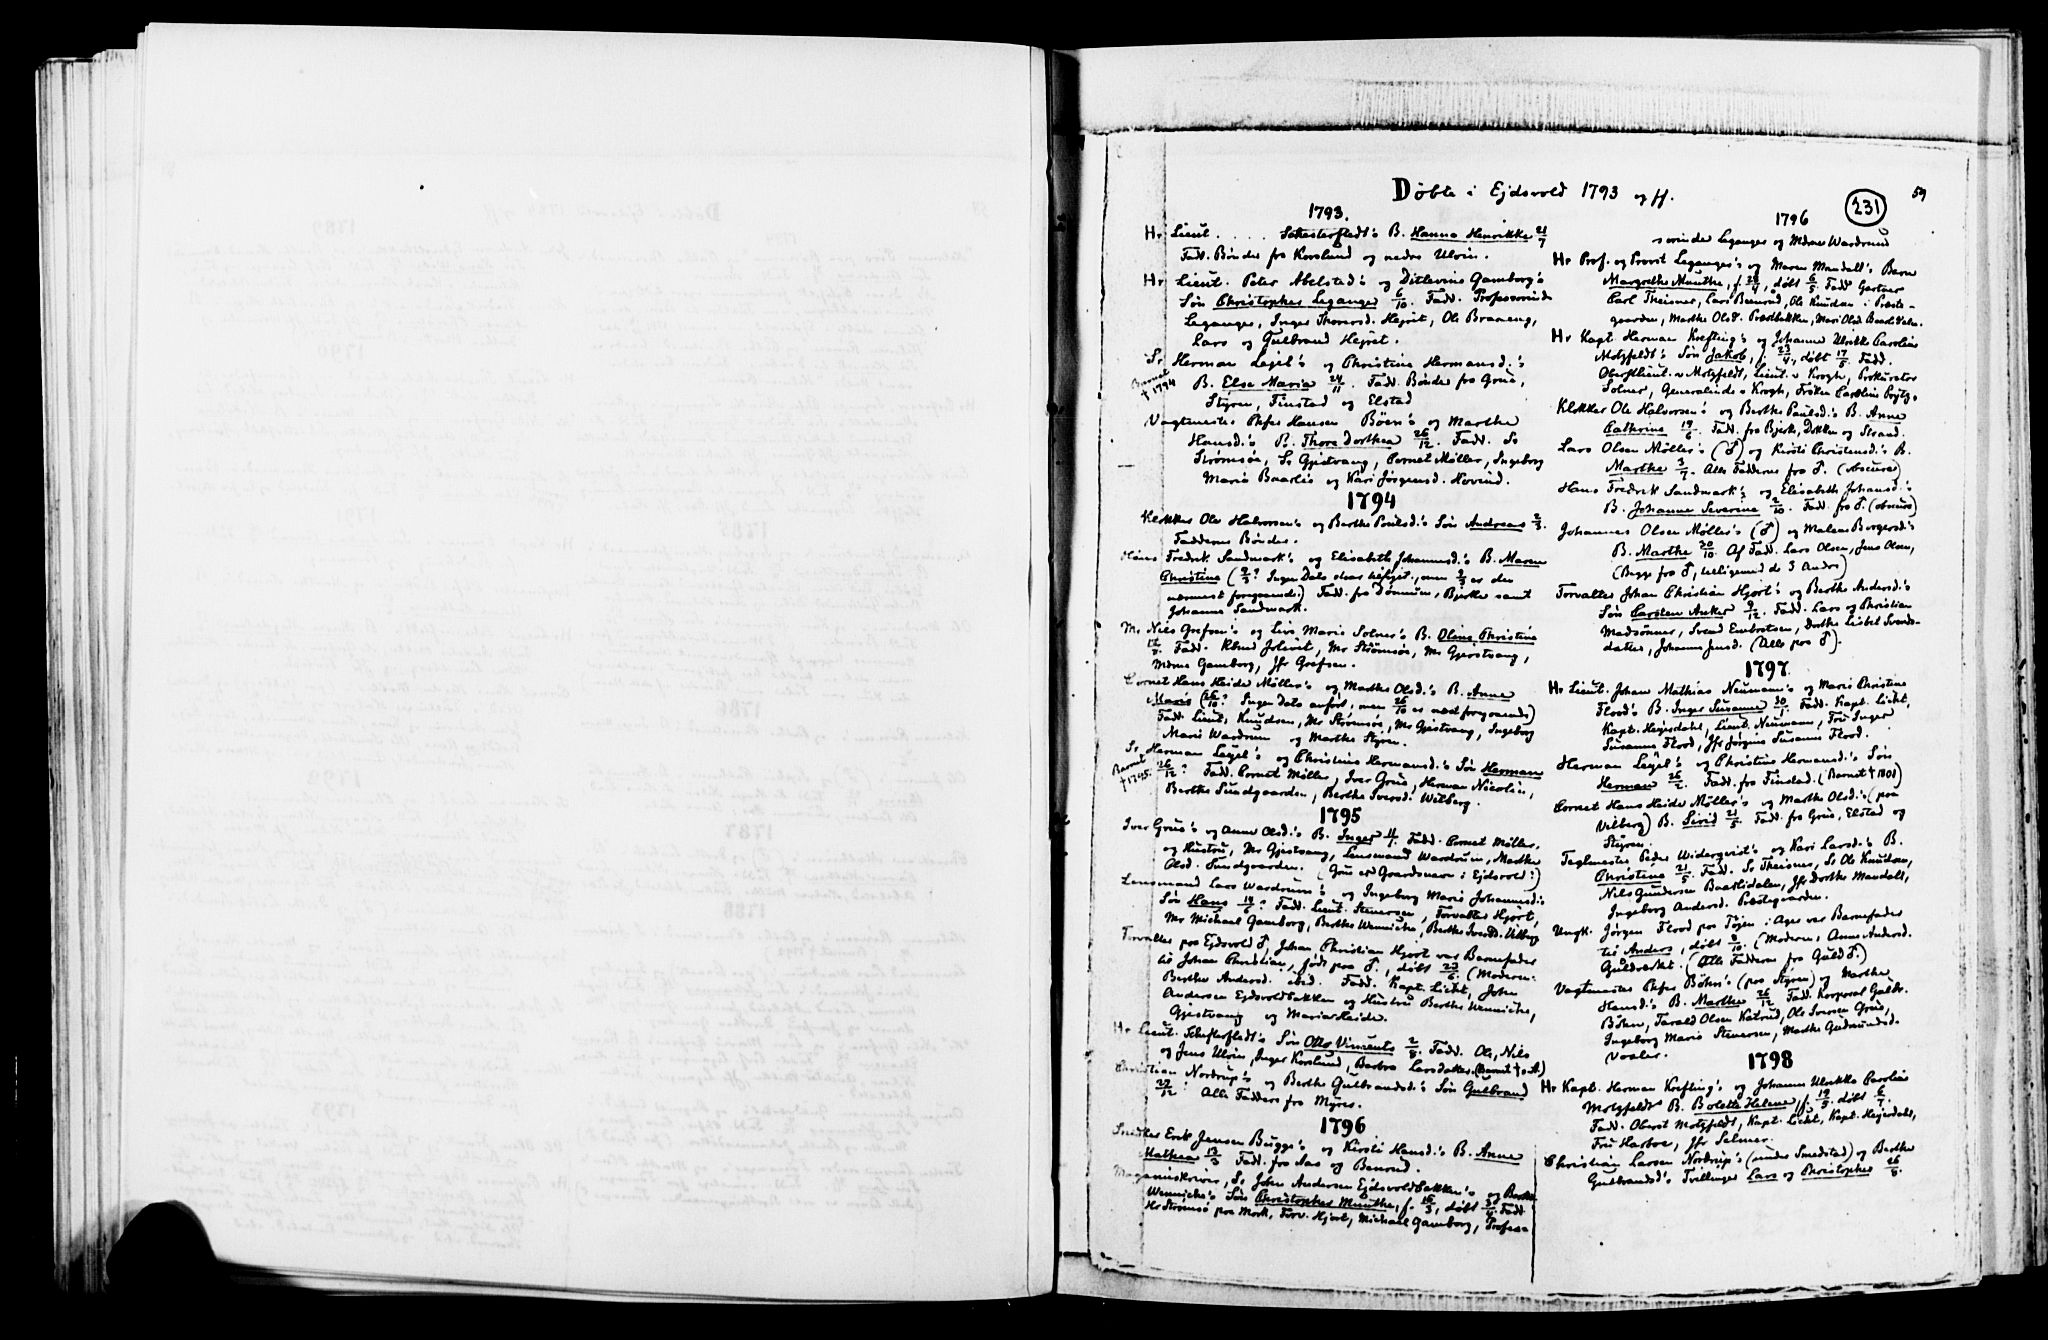 Døbte i Ejdsvold 1793 og ff.
59
231
1793.
Hr Lieut. . . . . . B. Hanna Henrikke 21/7
Fadd. Bønder fra Korslund og nedre Ulvin.
Hr Lieut. Peter Abelsted's og Ditlevine Gamborg's
Søn Christopher Leganger 6/10. Fadd. Professorinde
Leganger, Inger Thorersd. Hejret, Ole Braaeng,
Lars og Gulbrand Hejret.
Sr Herman Lejel's og Christine Hermansd.'s
Barnet † 1794
B. Else Maria 24/11. Fadd. Bønder fra Grue,
Styren, Finstad og Elstad
Vagtmester Peter Hansen Böen's og Marthe
Hansd.'s B. Thore Dorthea 26/12. Fadd. Sr
Strömsöe, Sr Gjestvang, Cornet Møller, Ingeborg
Marie Baarlie og Kari Jörgensd. Hovind.
1794
Klokker Ole Halvorsen's og Berthe Poulsd.'s Søn Andreas 2/3.
Fadderne Bønder.
Hans Fredrik Sandmark's og Elisabeth Johannesd.'s B. Maren
Christine (9/3? Ingen Dato er tilføjet, men 9/3 er den
nærmest foregaaende.) Fadd. fra Dønnum, Bjerke samt
Johanne Sandmark.
Mr Nils Grefsen's og Live Marie Solner's B. Oline Christine
Fadd. Knud Jolivet, Mr Strømsøe, Mr Gjestvang,
Mdme Gamborg, Jfr Grefsen.
Cornet Hans Heide Møller's og Marthe Olsd.'s B. Anne
Marie (26/10? Ingen Dato anført, men 26/10 er næst foregaaende)
Fadd. Lieut. Knudsen, Mr Strømsøe, Mr Gjestvang, Ingeborg
Marie Wardrum og Marthe Styren.
Sr Herman Lejel's og Christine Hermansd.'s Søn Herman
Barnet † 1795.
26/12? Fadd. Cornet Møller, Iver Grue, Herman Nicolin,
Berthe Sundgaarden, Berthe Iversd. Wilberg.
1795
Iver Grue's og Anne Olsd.'s B. Inger Fadd. Cornet Møller,
og Hustru, Mr Gjestvang, Lensmand Wardrum, Marthe
Olsd. Sundgaarden. (Grue er Gaardsnavn i Ejdsvold?)
Lensmand Lars Wardrum's og Ingeborg Marie Johannesd.'s
Søn Hans 14/6? Fadd. Lieut. Stenersen, Forvalter Hjort,
Mr Michael Gamborg, Berthe Wennicke, Berthe Iversd. Wilberg
Forvalter paa Ejdsvold ♂, Johan Christian Hjort var Barnefader
til Johan Christian, født paa ♂, døbt 23/6. (Moderen:
Berthe Andersd. ibid. Fadd. Kapt. Licht, John
Andersen Ejdsvoldbakken og Hustru Berthe Wennicke,
Gjestvang og Maria Heide.
Hr Lieut. Schesterfledt's Søn Otto Vincents 2/8. Fadd. Ole, Nils
og Jens Ulvin, Inger Korslund, Barbra Larsdatter. (Barnet † s.A.)
Christian Nordrup's og Berthe Gulbrandsd.'s Søn Gulbrand
27/12? Alle Faddere fra Myre.
1796
Snedker Erik Jensen Bugge's og Kirsti Hansd.'s B. Anne
Mathea 13/3 Fadd. fra Aas og Benrud.
Magasinskriver, Sr John Andersen Ejdsvoldbakken's og Berthe
Wennicke's Søn Christopher Munthe, f. 16/3, døbt 3/4 Fadd
Hr Strømsø paa Mork, Forv. Hjort, Michael Gamborg, Profes=
1796
sorinde Leganger og Mdme Wardrum
Hr Prof. og Provst Leganger's og Maren Mandall's Barn
Margrethe Munthe, f. 28/4, døbt 6/5 Fadd Gartner
Carl Theisner, Lars Benrud, Ole Knudsen i Præste-
gaarden, Marthe Olsd. Præstbakken, Mari Olsd. Baarlidalen.
Hr Kapt Herman Krefting's og Johanne Ulrikke Caroline
Motzfeldt's Søn Jakob, f. 23/4, døbt 17/5. Fadd.
Oberstlieut. v Motzfeldt, Lieut. v Krogh, Prokurator
Solner, Generalinde v Krogh, Frøken Caroline Prytz.
Klokker Ole Halvorsen's og Berthe Paulsd.'s B. Anne
Cathrine 19/6. Fadd. fra Bjerke, Dokken og Strand.
Lars Olsen Møller's (♂) og Kirsti Christensd.'s B.
Marthe 3/7. Alle Fadderne fra ♂. (obscure)
Hans Fredrik Sandmark's og Elisabeth Johansd.'s
B. Johanne Severine 2/10. Fadd. fra ♂. (obscure)
Johannes Olsen Møller's (♂) og Malene Borgersd's
B. Marthe 30/10. Af Fadd. Lars Olsen, Jens Olsen,
(Begge fra ♂, ligesaa de 3 Andre)
Forvalter Johan Christian Hjort's og Berthe Andersd.'s
Søn Carsten Anker 9/12. Fadd. Lars og Christian
Madsønner, Svend Embretsen, Dorthe Lisbet Svends-
datter, Johanne Jensd. (Alle paa ♂).
1797.
Hr Lieut. Johan Mathias Neumann's og Marie Christine
Flood's B. Inger Susanne 30/1. Fadd. Kapt. Licht,
Kapt. Hejerdahl, Lieut. Neumann, Fru Inger
Susanne Flood, Jfr Jørgine Susanne Flood.
Herman Lejel's og Christine Hermansd.'s Søn
Herman 26/2. Fadd. fra Finstad. (Barnet † 1801)
Cornet Hans Heide Møller's og Marthe Olsd.'s (paa
Vilberg) B. Sirid 21/5 Fadd. fra Grue, Elstad og
Styren.
Teglmester Peder Widerqvist's og Kari Larsd.'s B.
Christine 21/5. Fadd. Sr Theisner, Sr Ole Knudsen,
Nils Gundersen Baarlidalen, Jfr Dorthe Mandall,
Ingeborg Andersd. Præstegaarden.
Ungk. Jørgen Flood paa Tøjen i Ager var Barnefader
til Anders, døbt 8/10. (Moderen, Anne Andersd.
Guldværket. (Alle Faddere fra Guld ♂.)
Vagtmester Peter Böhn's (paa Styren) og Marthe
Hansd.'s B. Marthe 26/12 Fadd. Korporal Gulbr.
Böhn, Tarald Olsen Katrud, Ole Iversen Grue,
Ingeborg Marie Stenersen, Marthe Gudmundsd.
Vaaler.
1798
Hr Kapt. Herman Krefting's og Johanne Ulrikke Caroline
Motzfeldt B. Bolette Helene, f. 19/5. døbt 6/7.
Fadd. Oberst Motzfeldt, Kapt. Licht, Kapt. Hejerdahl,
Fru Harboe, Jfr Selmer.
Christian Larsen Nordrup's (under Smedstad) og Berthe
Gulbrandsd's Tvillinger Lars og Christopher 26/8.